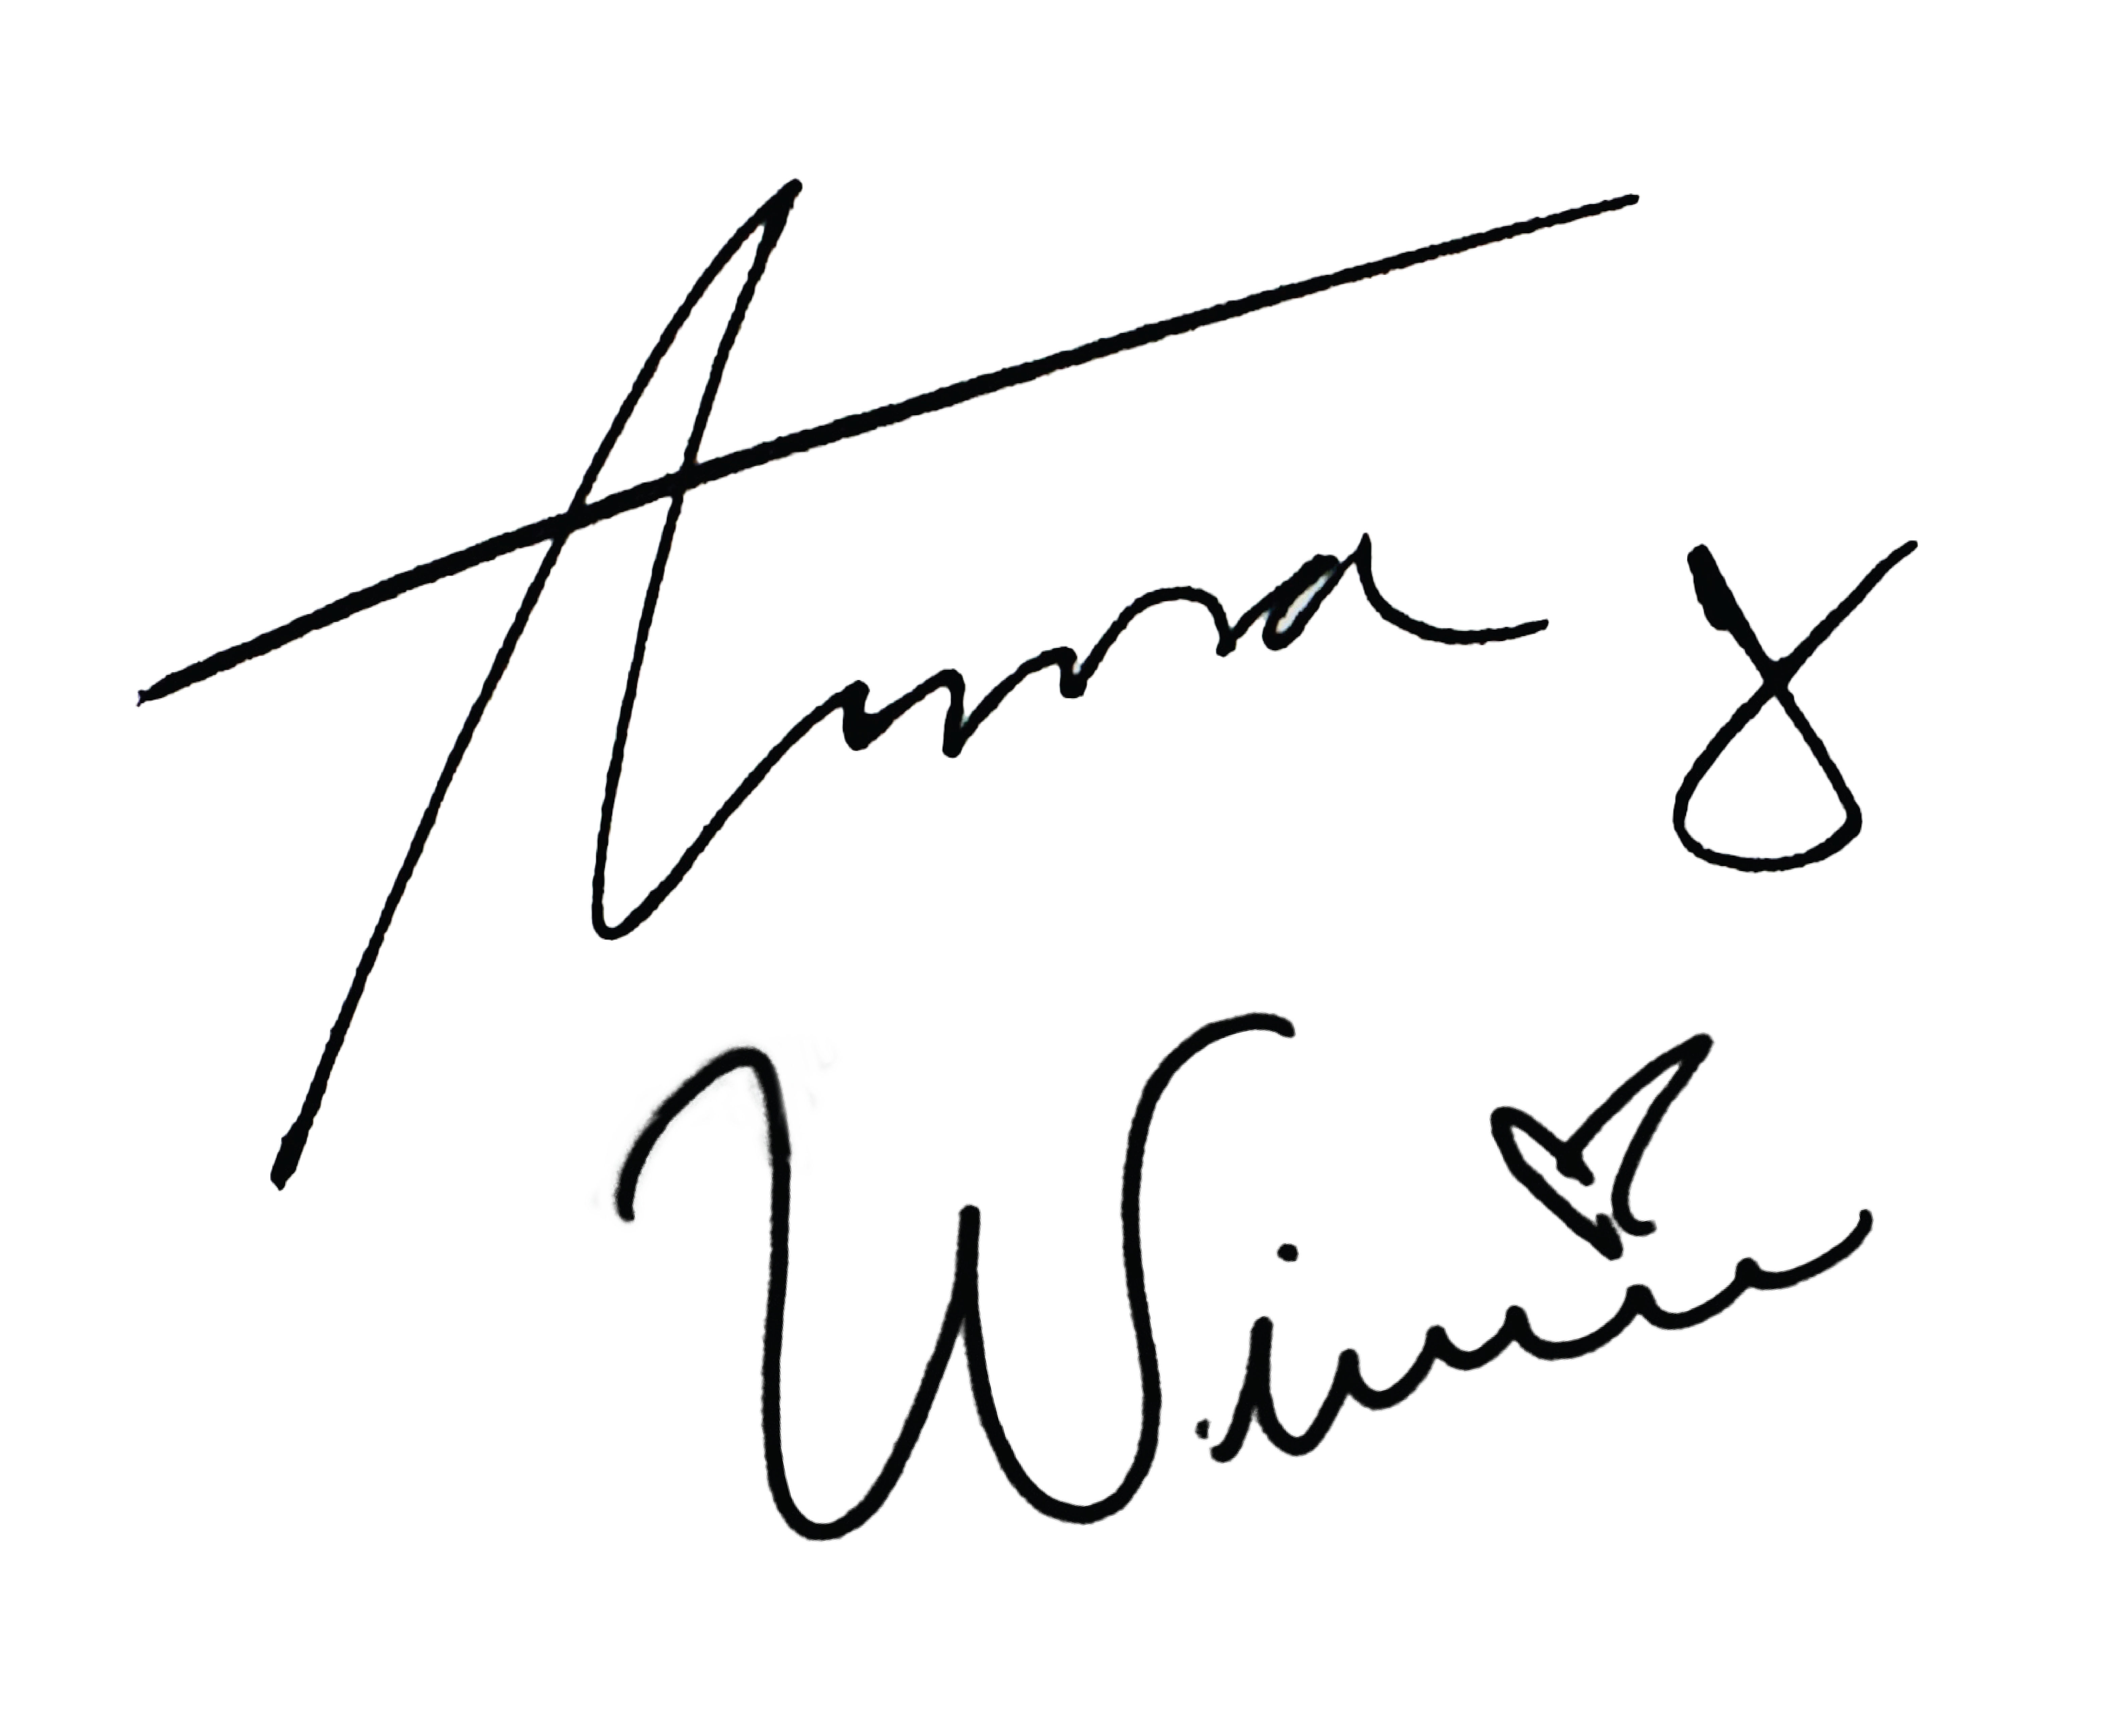 Anna 8
Winnie